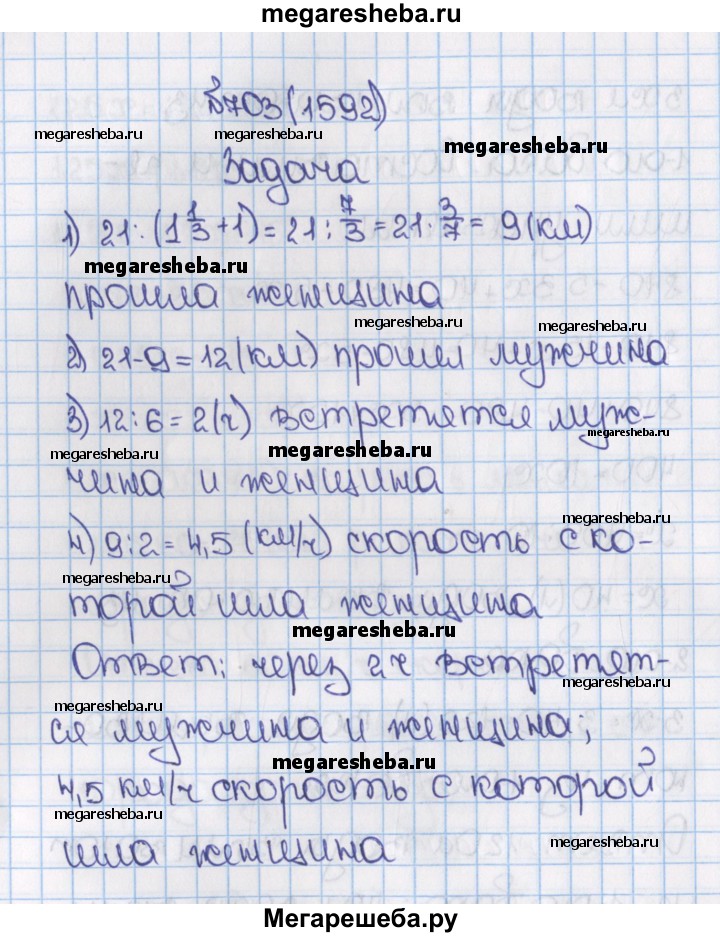 megaresheba.ru
№703(1592)
megaresheba.ru megaresheba.ru megaresheba.ru
Задача
1) 21 : (1 1/3 + 1) = 21 : 7/3 = 21 · 3/7 = 9 (км)
megaresheba.ru
прошла женщина
megaresheba.ru megaresheba.ru
2) 21-9=12(км) прошел мужчина
3) 12:6=2(ч) встретятся муж-
megaresheba.ru megaresheba.ru megaresheba.ru
чина и женщина
megaresheba.ru
4) 9:2=4,5 (км/ч) скорость с ко-
megaresheba.ru
торой шла женщина
megaresheba.ru
Ответ: через 2ч встретят-
megaresheba.ru
megaresheba.ru
ся мужчина и женщина;
megaresheba.ru
4,5 км/ч скорость с которой
megaresheba.ru
megaresheba.ru
шла женщина
Мегарешеба.ру